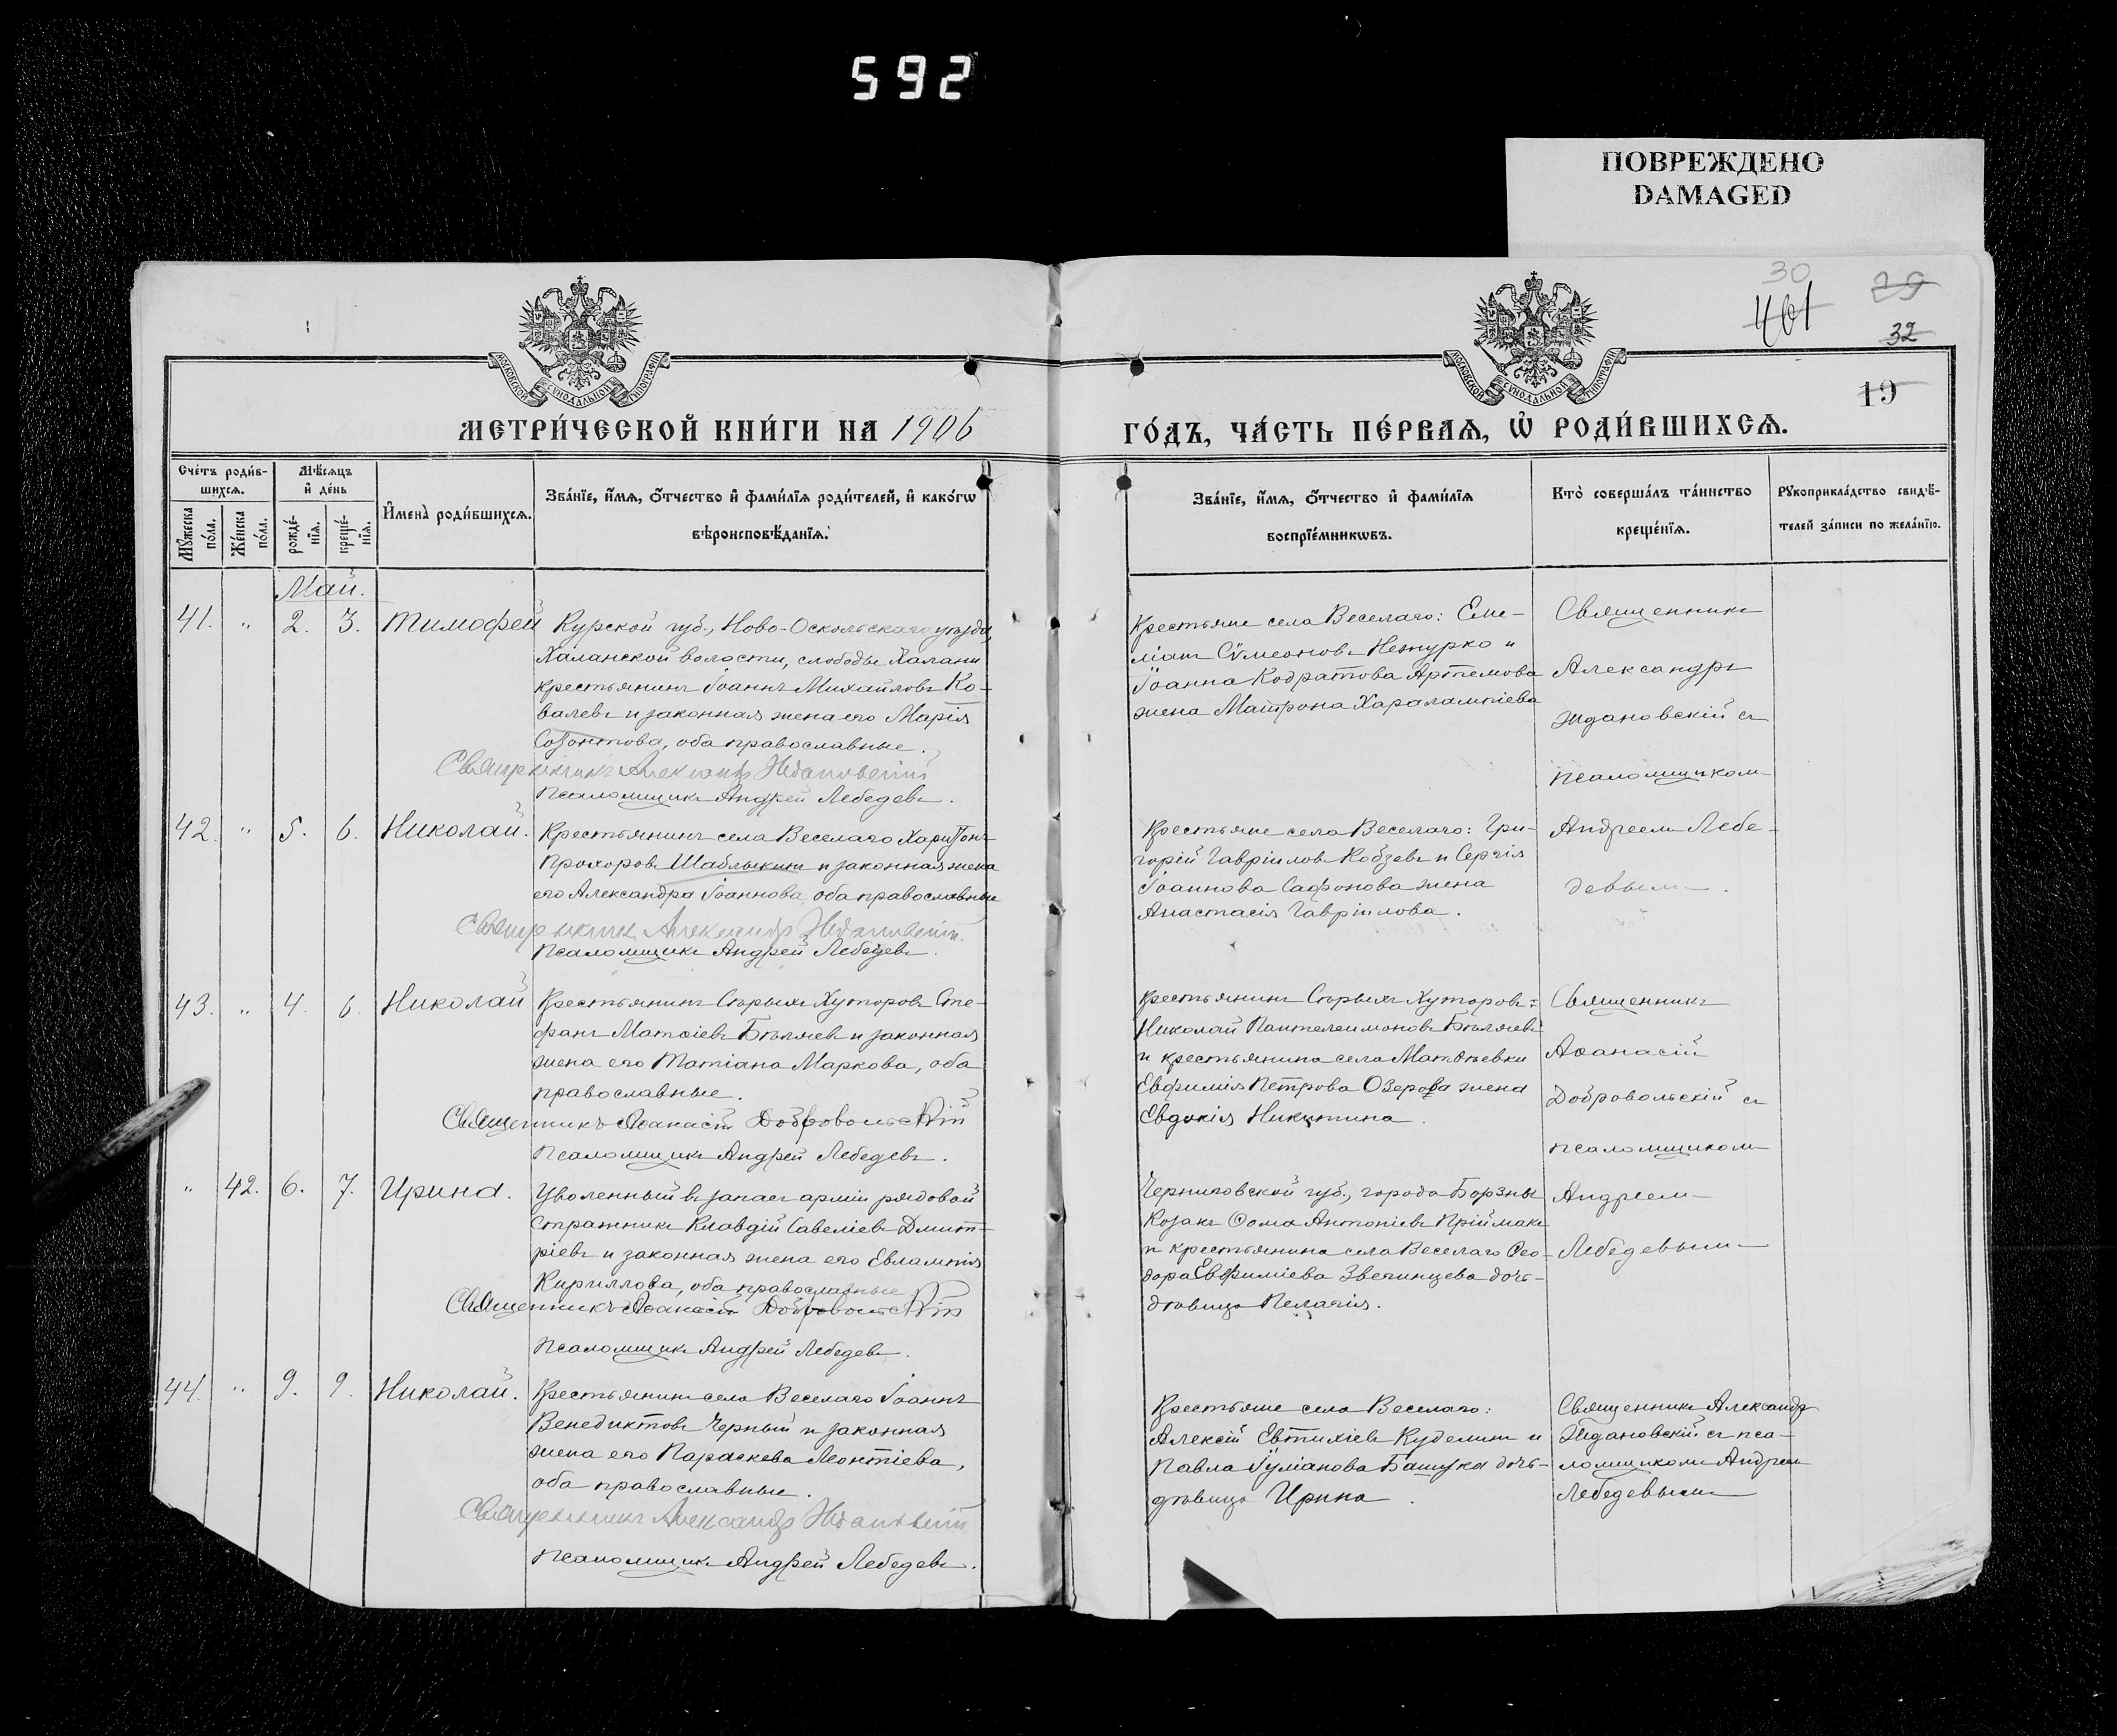 592
ПОВРЕЖДЕНО
DAMAGED
30
29
461
32
19
МОСКОВСКОЙ СѴНОДАЛЬНОЙ ТИПОГРАФІИ
МОСКОВСКОЙ СѴНОДАЛЬНОЙ ТИПОГРАФІИ
МЕТРИ́ЧЕСКОЙ КНИ́ГИ НА 1906
ГО́ДЪ, ЧА́СТЬ ПЕ́РВАѦ, Ѽ РОДИ́ВШИХСѦ.
Сче́тъ роди́в-
шихсѧ.
Мѣ́сѧцъ
и҆ де́нь
Мꙋ́жеска по́ла.
Же́нска по́ла.
рожде́-нїѧ.
креще́-нїѧ.
И҆мена̀ роди́вшихсѧ.
Зва́нїе, и҆́мѧ, ѻ҆́тчество и҆ фами́лїѧ роди́телей, и҆ како́гѡ
вѣроисповѣ́данїѧ.
Зва́нїе, и҆́мѧ, ѻ҆́тчество и҆ фами́лїѧ
воспрїе́мникѡвъ.
Кто̀ соверша́лъ та́инство
креще́нїѧ.
Рꙋкоприкла́дство свидѣ́-
телей за́писи по жела́нїю.
Май.
41. „ 2. 3. Тимофей
Курской губ., Ново-Оскольскаго уѣзда,
Халанской волости, слободы Халани
крестьянинъ Іоаннъ Михайловъ Ко-
валевъ и законная жена его Марія
Созонтова, оба православные.
Священникъ Александръ Ждановскій
Псаломщикъ Андрей Лебедевъ.
Крестьяне села Веселаго: Еме-
ліанъ Сѵмеоновъ Нетурко и
Іоанна Кодратова Артемова
жена Матрона Харалампіева
Священникъ
Александръ
Ждановскій съ
псаломщикомъ
42. „ 5. 6. Николай.
Крестьянинъ села Веселаго Харитонъ
Прохоровъ Шаблыкинъ и законная жена
его Александра Іоаннова, оба православные
Священникъ Александръ Ждановскій.
Псаломщикъ Андрей Лебедевъ.
Крестьяне села Веселаго: Гри-
горій Гавріиловъ Кобзевъ и Сергія
Іоаннова Сафонова жена
Анастасія Гавріилова.
Андреемъ Лебе-
девымъ.
43. „ 4. 6. Николай.
Крестьянинъ Сѣрыхъ Хуторовъ Сте-
фанъ Матѳіевъ Бѣляевъ и законная
жена его Татіана Маркова, оба
православные.
Священникъ Аѳанасій Добровольскій
Псаломщикъ Андрей Лебедевъ.
Крестьянинъ Сѣрыхъ Хуторовъ:
Николай Пантелеимоновъ Бѣляевъ
и крестьянина села Матвѣевки
Евфимія Петрова Озерова жена
Евдокія Никитина.
Священникъ
Аѳанасій
Добровольскій съ
псаломщикомъ
„ 42. 6. 7. Ирина.
Уволенный въ запасъ арміи рядовой
Стражникъ Клавдій Савеліевъ Дмит-
ріевъ и законная жена его Евлампія
Кириллова, оба православные
Священникъ Аѳанасій Добровольскій
Псаломщикъ Андрей Лебедевъ.
Черниговской губ., города Борзны
Козакъ Ѳома Антоніевъ Пріймакъ
и крестьянина села Веселаго Ѳео-
дора Евфиміева Звегинцева дочь-
дѣвица Пелагія.
Андреемъ
Лебедевымъ
44. „ 9. 9. Николай.
Крестьянинъ села Веселаго Іоаннъ
Венедиктовъ Черный и законная
жена его Параскева Леонтіева,
оба православные.
Священникъ Александръ Ждановскій
Псаломщикъ Андрей Лебедевъ.
Крестьяне села Веселаго:
Алексій Евтихіевъ Куделинъ и
Павла Іуліанова Башука дочь-
дѣвица Ирина.
Священникъ Александръ
Ждановскій съ пса-
ломщикомъ Андреемъ
Лебедевымъ